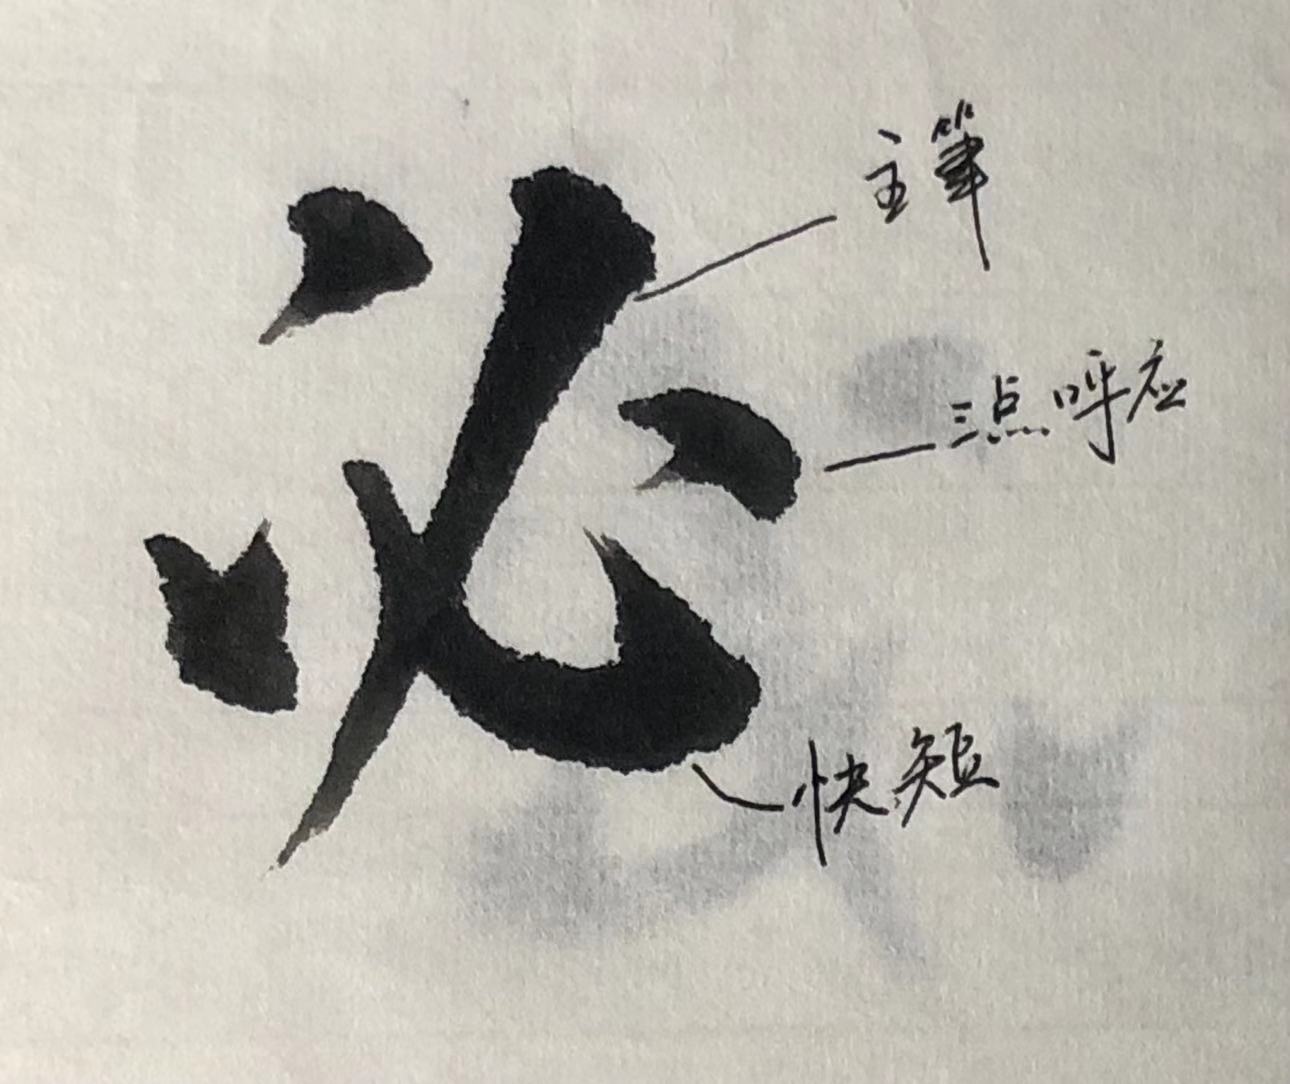 必
主筆
三点呼应
快短